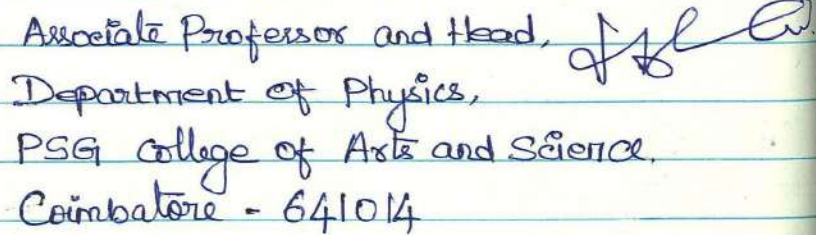 Associate Professor and Head,
Department of Physics,
PSG College of Arts and Science.
Coimbatore - 641014